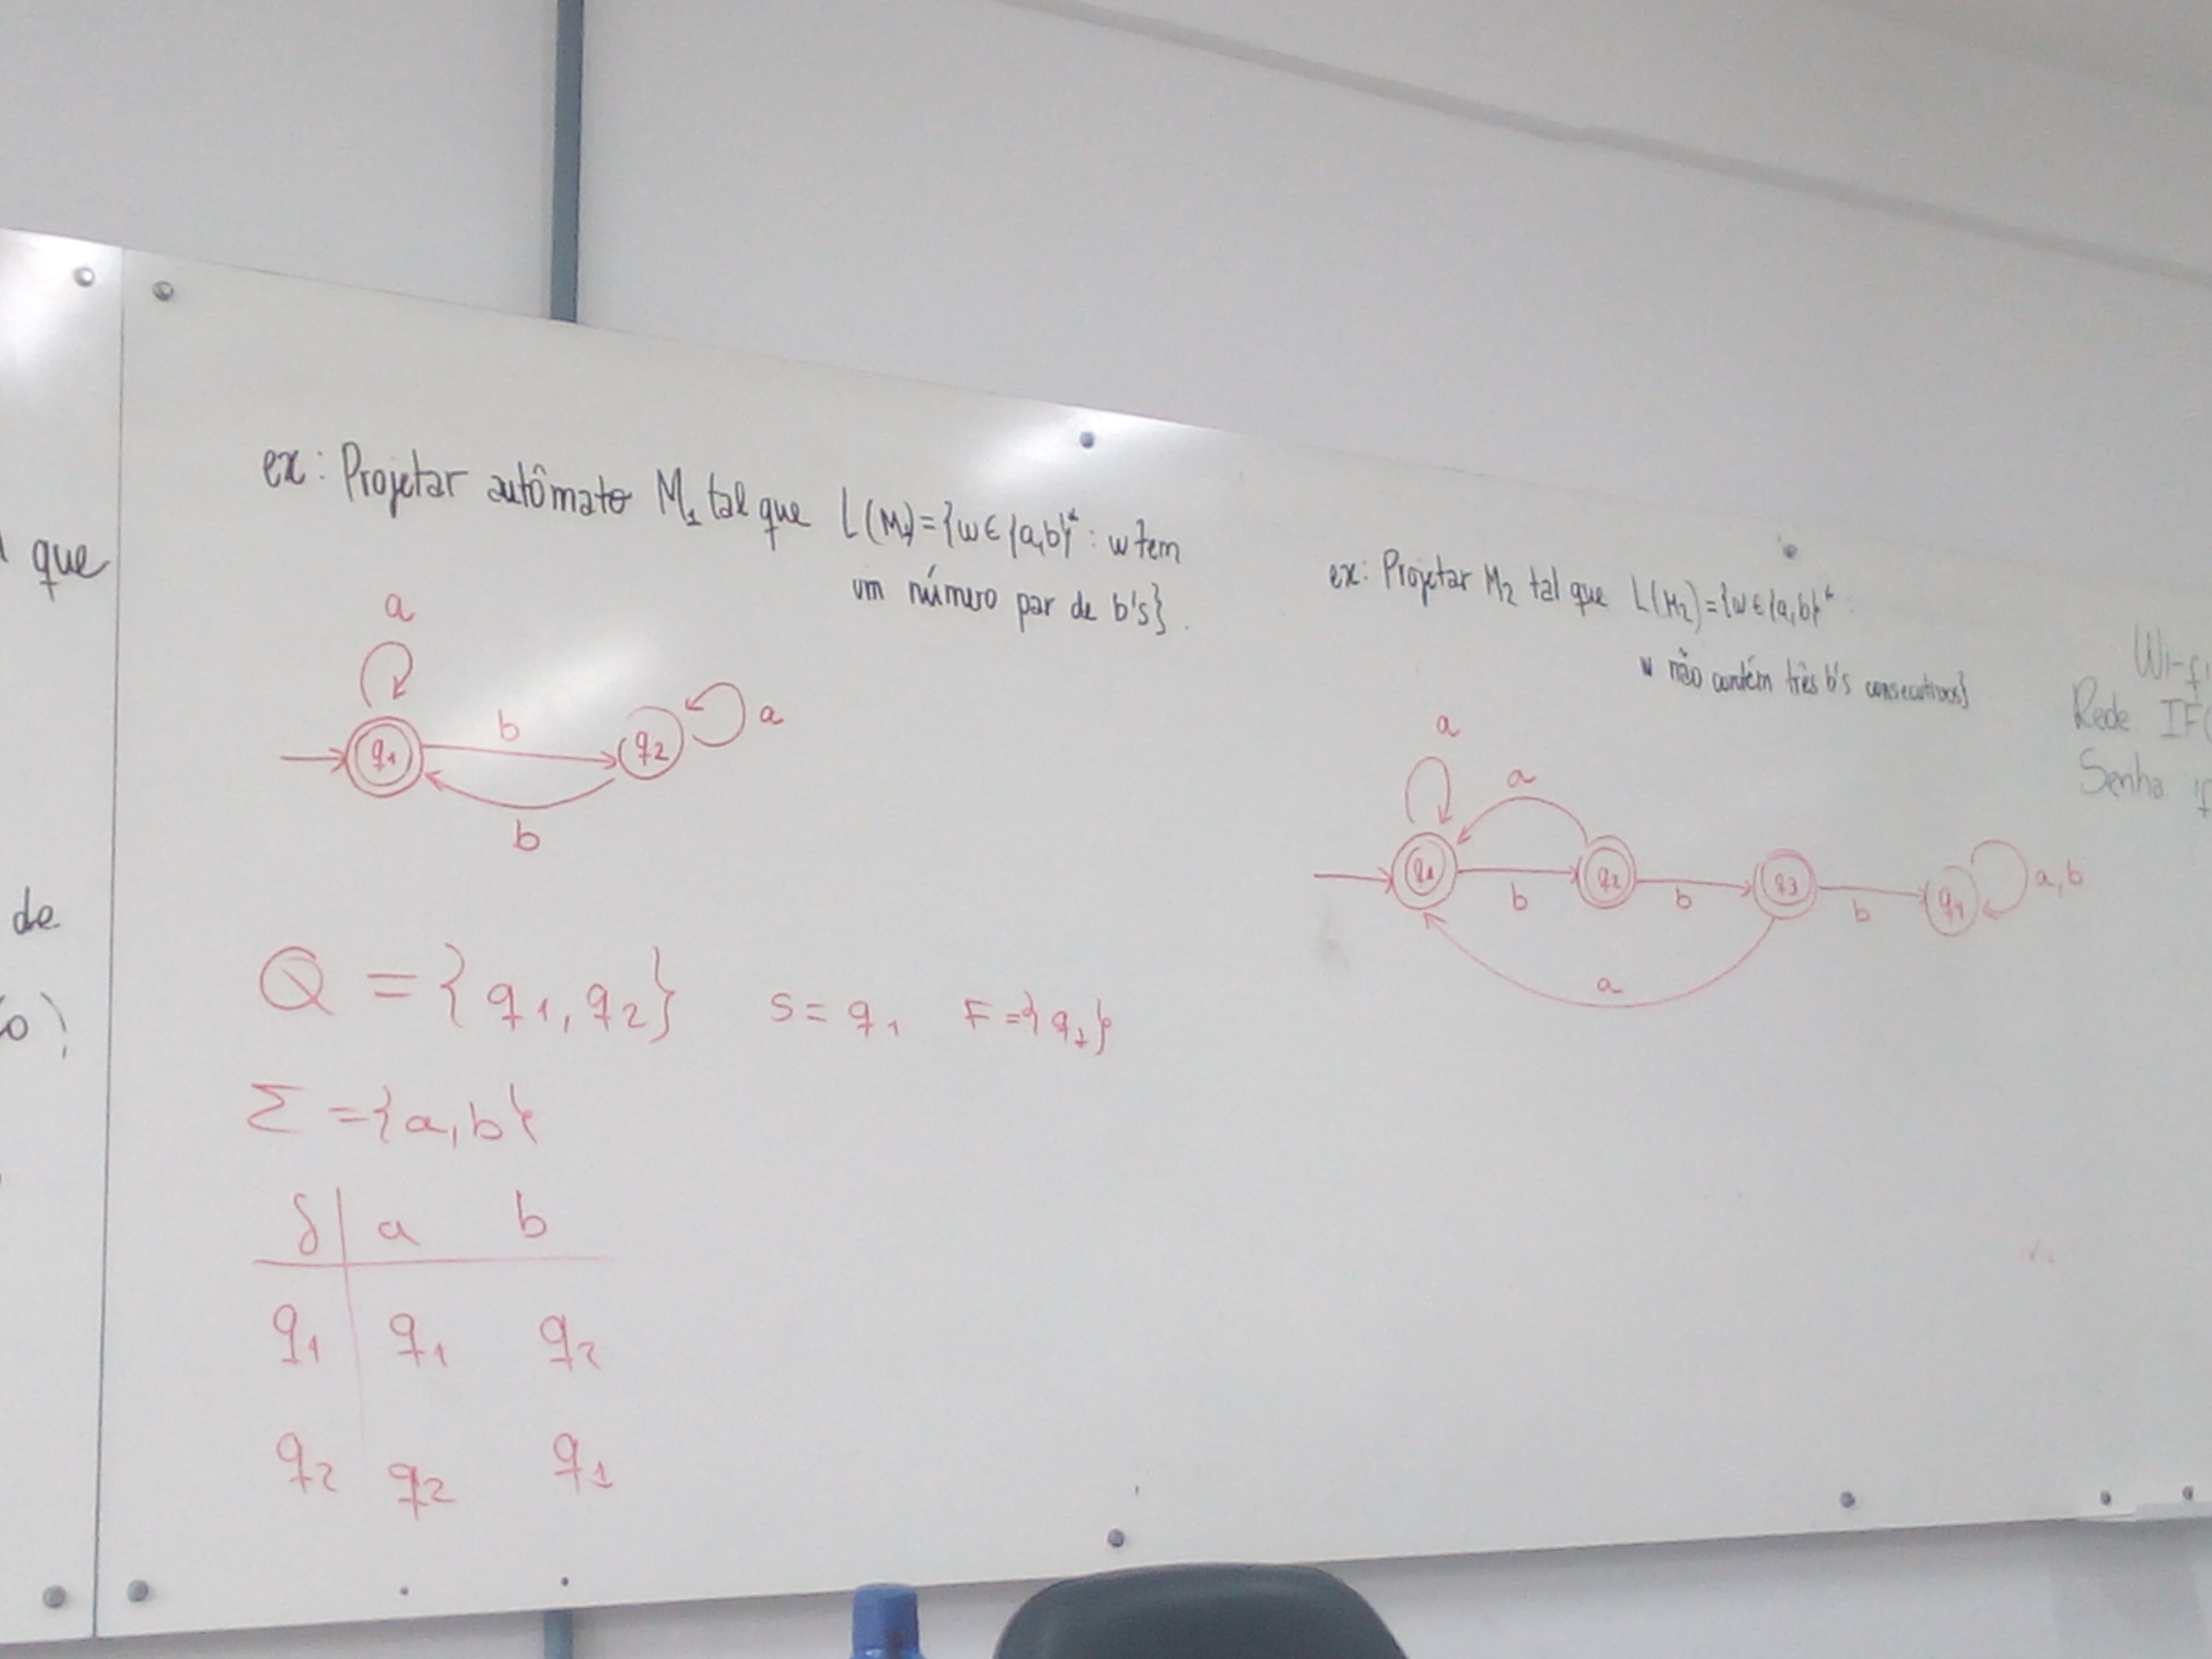 que
de
ex: Projetar autômato M1 tal que L(M1)={w∈{a,b}*: w tem
um número par de b's}.
a
q1
b
q2
a
b
Q={q1,q2} S=q1 F={q1}
Σ={a,b}
δ a b
q1 q1 q2
q2 q2 q1
ex: Projetar M2 tal que L(M2)={w∈{a,b}*:
w não contém três b's consecutivos}
a
a
q1
b
q2
b
q3
b
q4
a,b
a
Wi-fi
Rede
Senha